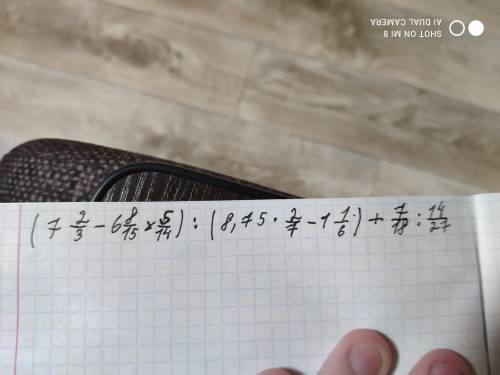 SHOT ON MI 8
AI DUAL CAMERA
(7 2/3 - 6 8/15 × 5/14) : (8,75 · 2/7 - 1 1/6) + 7/18 : 14/27